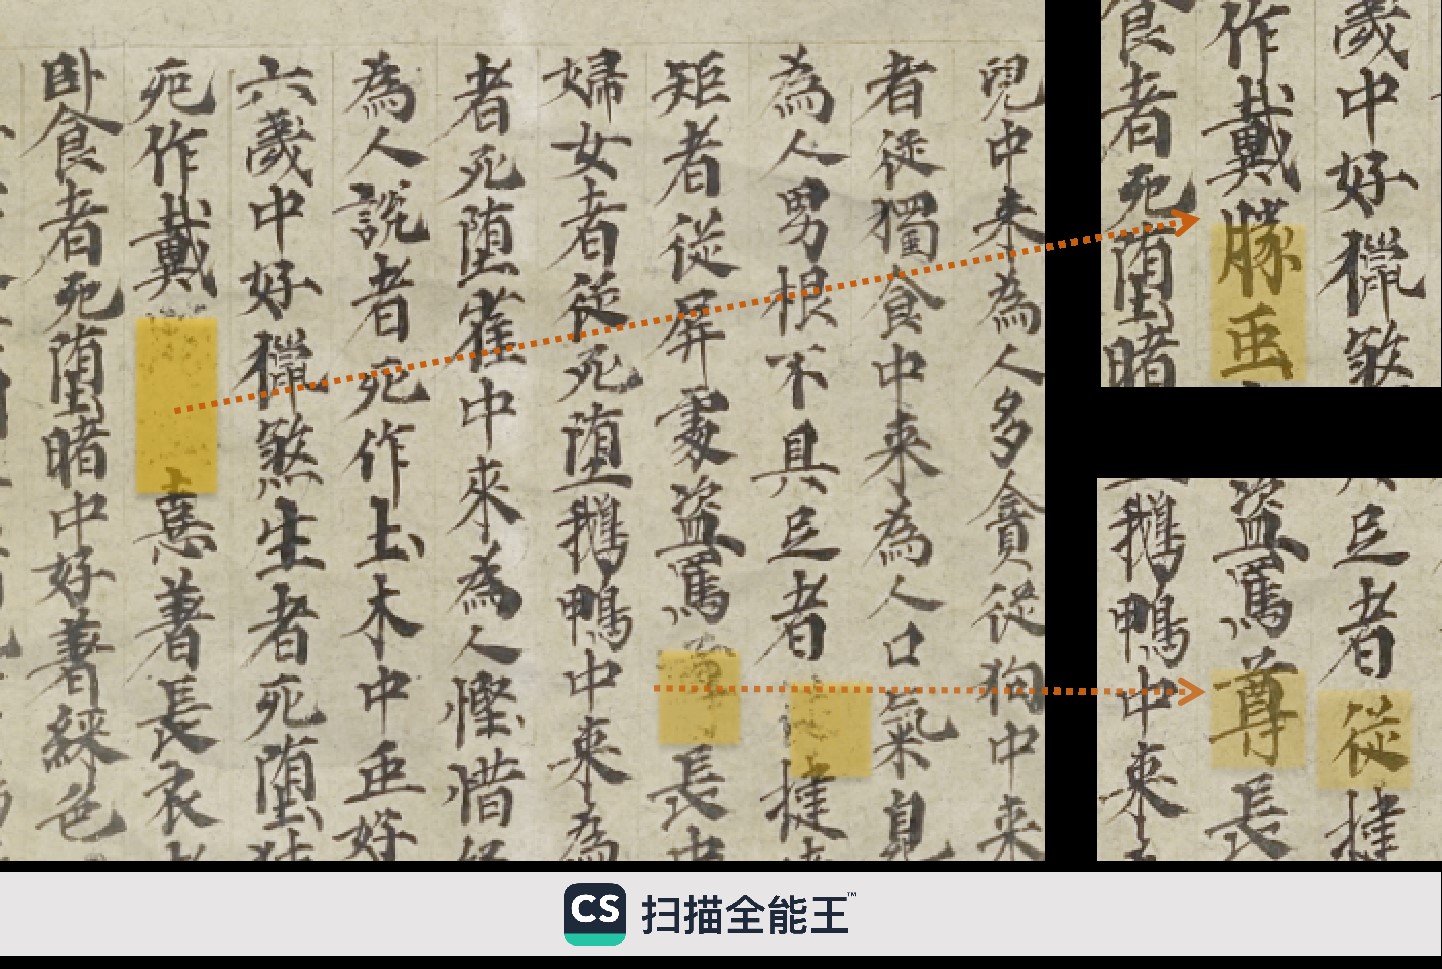 兒中来為人多貪從狗中来
者從獨食中来為人口氣臭
為人男根不具足者揵
矩者從屏處盜罵長中
婦女者從死墮鵝鴨中来為
者死墮雀中來為人慳惜
為人説者死作土木中虫好
六歲中好獵煞生者死墮
死作戴憙著長衣
卧食者死墮暏中好著綵色
歲中好獵煞
作戴勝虫
食者死墮暏
足者從揵
盜罵尊長
鵝鴨中来
CS 扫描全能王™